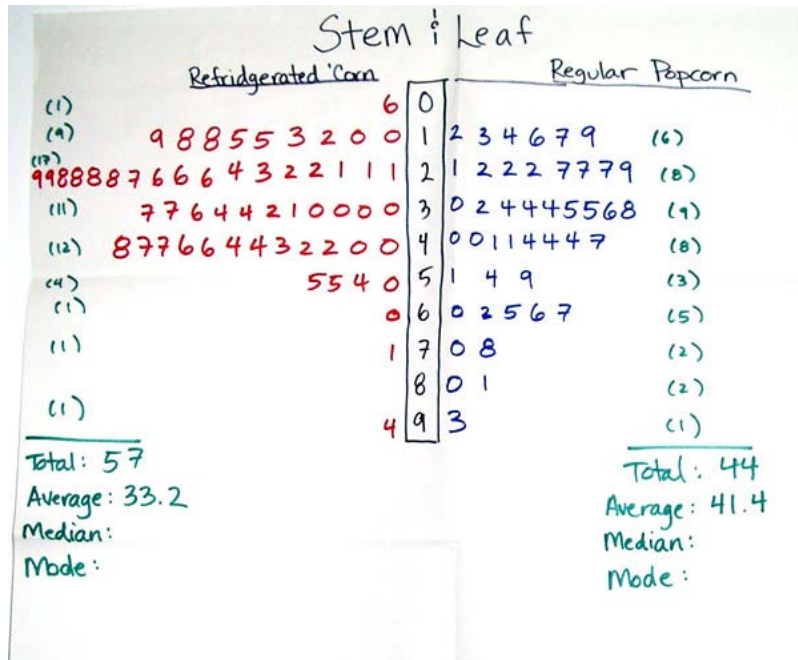 Stem & Leaf
Refridgerated 'Corn Regular Popcorn
(1) 6 0
(9) 9 8 8 5 5 3 2 0 0 1 2 3 4 6 7 9 (6)
(17) 9 9 8 8 8 8 7 6 6 6 4 3 2 2 1 1 1 2 1 2 2 2 7 7 7 9 (8)
(11) 7 7 6 4 4 2 1 0 0 0 0 3 0 2 4 4 4 5 5 6 8 (9)
(12) 8 7 7 6 6 4 4 3 2 2 0 0 4 0 0 1 1 4 4 4 7 (8)
(4) 5 5 4 0 5 1 4 9 (3)
(1) 0 6 0 2 5 6 7 (5)
(1) 1 7 0 8 (2)
8 0 1 (2)
(1) 4 9 3 (1)
Total: 57 Total: 44
Average: 33.2 Average: 41.4
Median: Median:
Mode: Mode: